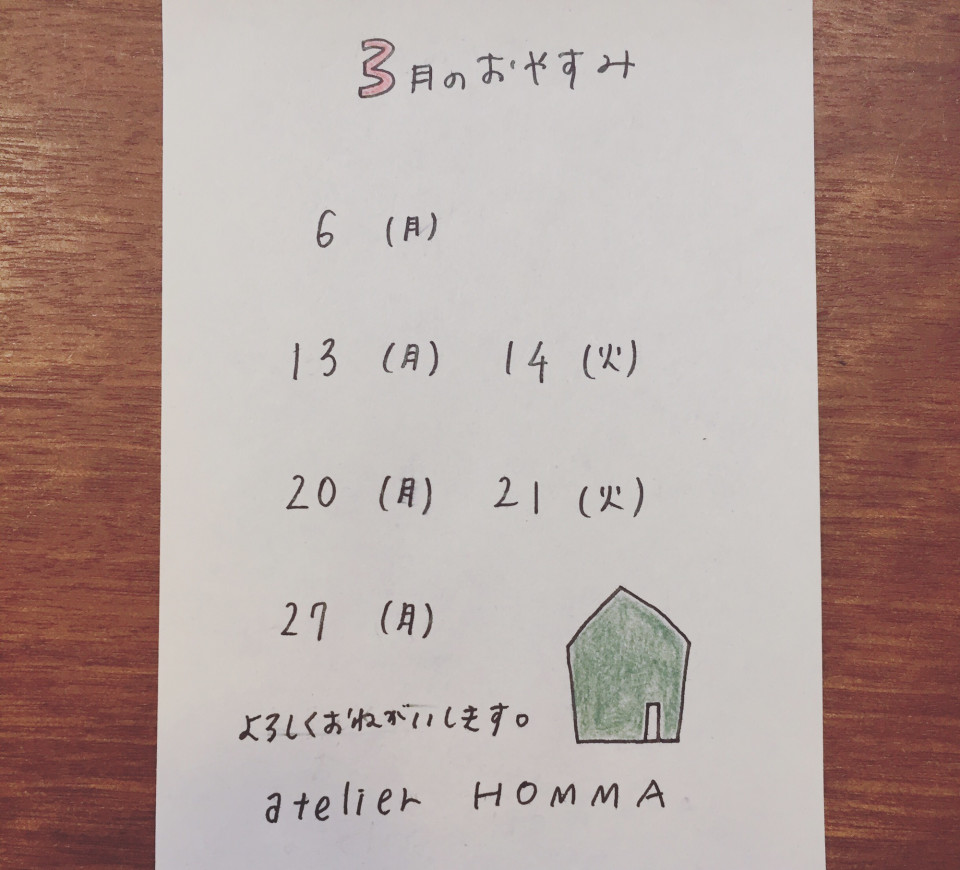 3月のおやすみ
6 (月)
13 (月) 14 (火)
20 (月) 21 (火)
27 (月)
よろしくおねがいします。
atelier HOMMA